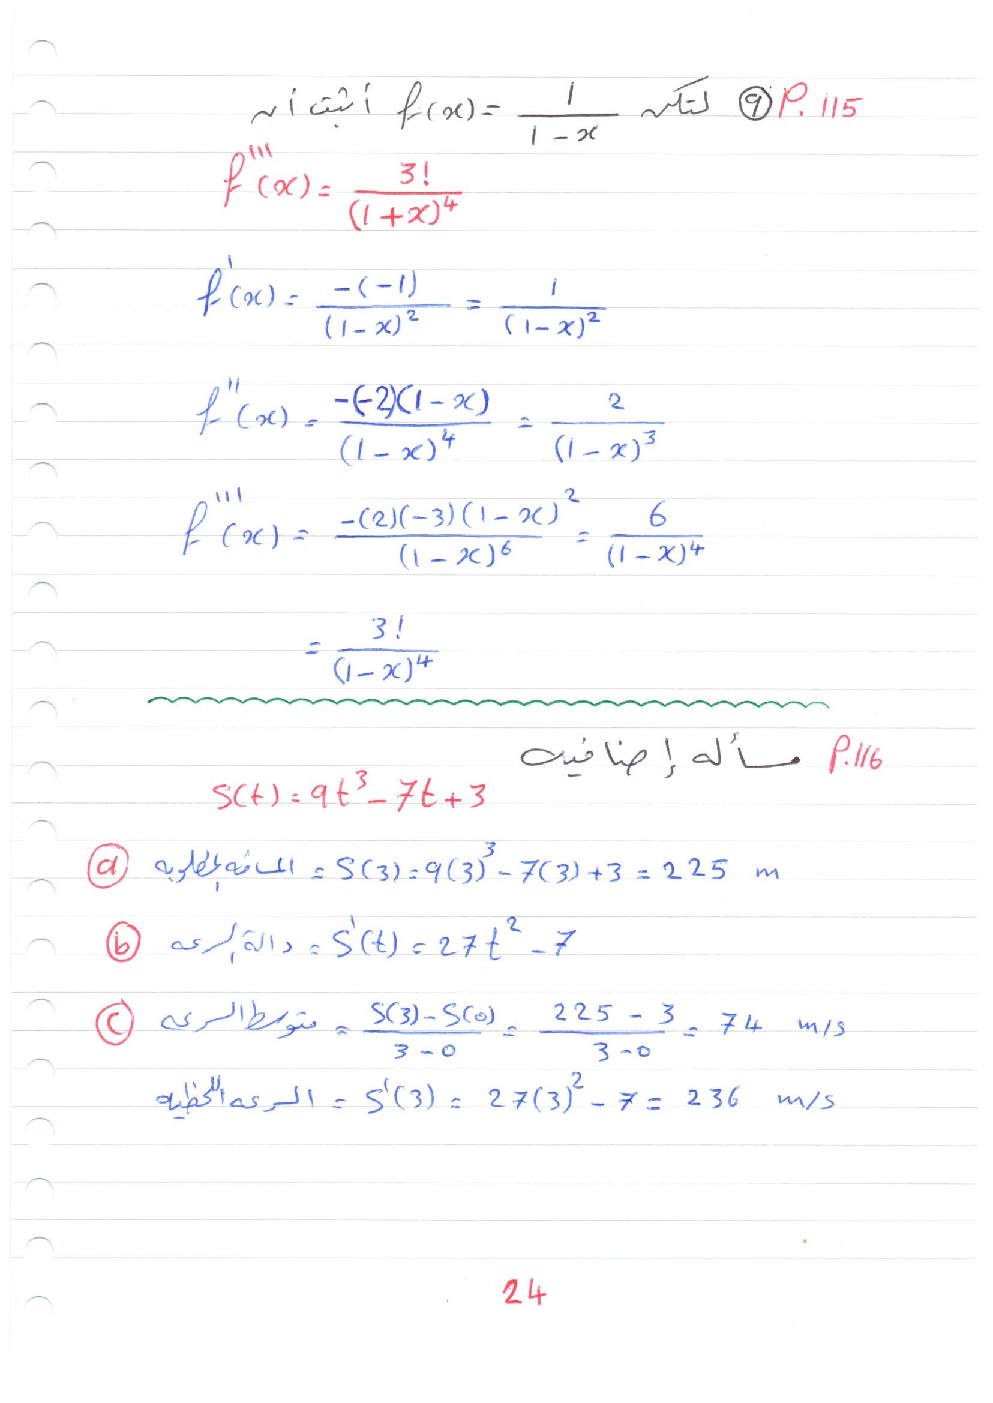 P. 115 ⑨ لتكن f(x) = 1/(1-x) أثبت أن
f'''(x) = 3!/(1+x)^4
f'(x) = -(-1)/(1-x)^2 = 1/(1-x)^2
f''(x) = -(-2)(1-x)/(1-x)^4 = 2/(1-x)^3
f'''(x) = -(2)(-3)(1-x)^2/(1-x)^6 = 6/(1-x)^4
= 3!/(1-x)^4
P.116 مسأله إضافيه
S(t) = 9t^3 - 7t + 3
ⓐ المسافه المطلوبه = S(3) = 9(3)^3 - 7(3) + 3 = 225 m
ⓑ دالة السرعه = S'(t) = 27t^2 - 7
ⓒ متوسط السرعه = (S(3) - S(0))/(3-0) = (225 - 3)/(3-0) = 74 m/s
السرعه اللحظيه = S'(3) = 27(3)^2 - 7 = 236 m/s
24